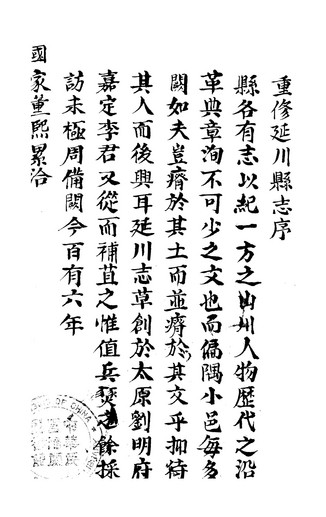 重修延川縣志序
縣各有志以紀一方之山川人物歷代之沿
革典章洵不可少之文也而偏隅小邑每多
闕如夫豈瘠於其土而並瘠於其文乎抑待
其人而後興耳延川志草創於太原劉明府
嘉定李君又從而補苴之惟值兵燹之餘採
訪未極周備閱今百有六年
國家重熙累洽